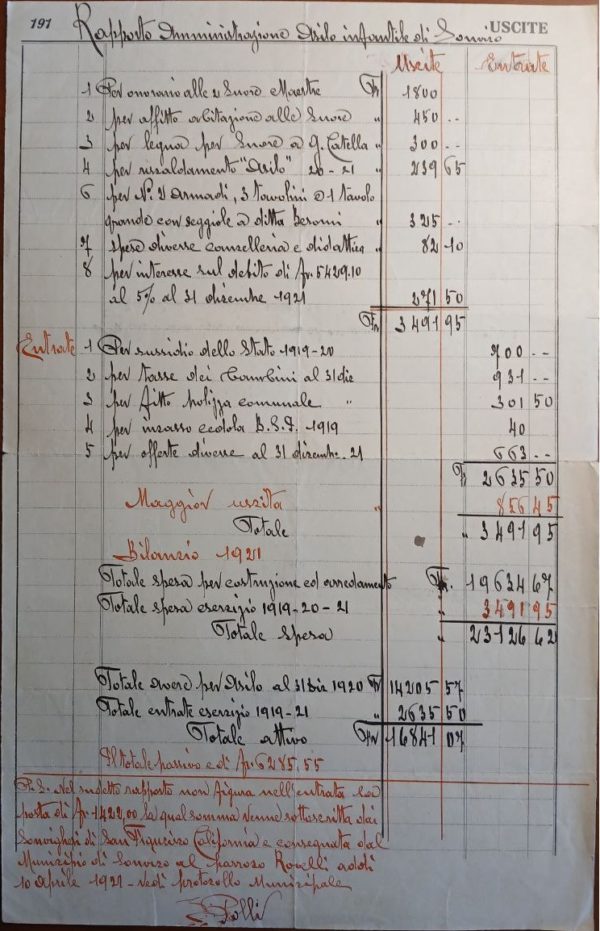 191 USCITE
Rapporto Amministrazione Asilo infantile di Sonvico
Uscite Entrate
1 Per onorario alle 2 Suore Maestre Fr 1800
2 per affitto abitazione alle Suore " 450 --
3 per legna per Suore a G. Catella " 300 --
4 per riscaldamento "Asilo" 20-21 " 239 65
6 per No. 2 Armadi, 3 tavolini e 1 tavolo
grande con seggiole a ditta Besomi " 325 --
7 Spese diverse cancelleria e didattica " 82 10
8 per interesse sul debito di fr. 5429.10
al 5% al 31 dicembre 1921 271 50
Fr 3491 95
Entrate 1 Per sussidio dello Stato 1919-20 700 --
2 per tasse dei bambini al 31 dic 931 --
3 per fitto polizza comunale " 301 50
4 per incasso cedola B.S.I. 1919 40
5 per offerte diverse al 31 dicembre 21 663 --
Fr 2635 50
Maggior uscita " 856 45
Totale " 3491 95
Bilancio 1921
Totale spesa per costruzione ed arredamento Fr. 19634 67
Totale spesa esercizio 1919-20-21 " 3491 95
Totale spesa " 23126 62
Totale avere per Asilo al 31 Dic 1920 Fr 14205 57
Totale entrate esercizio 1919-21 " 2635 50
Totale attivo Fr 16841 07
Il totale passivo e di fr. 6285,55
P.S. Nel sudetto rapporto non figura nell'entrata la
posta di fr. 1422,00 la qual somma venne sottoscritta dai
Sonvighesi di California e consegnata dal
Municipio di Sonvico al parroco Rovelli addì
10 Aprile 1921 - Vedi protocollo Municipale